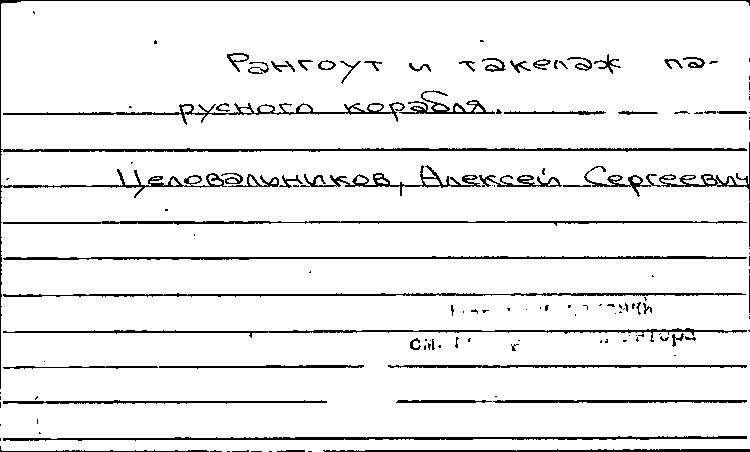 Рангоут и такелаж па-
русного корабля.
Целовальников, Алексей Сергеевич
см.